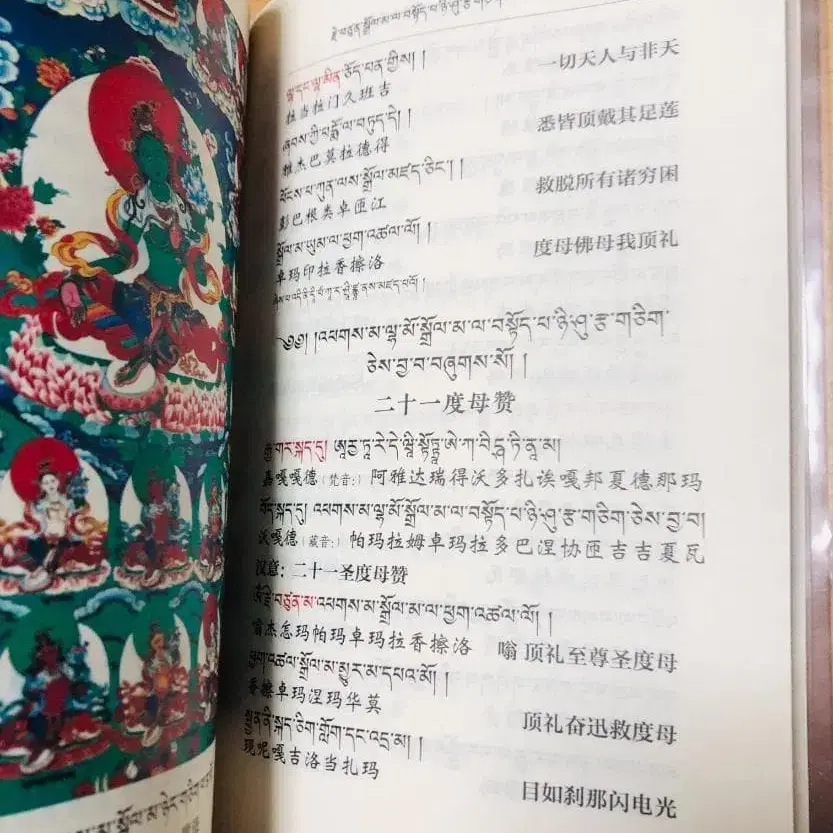 རྗེ་བཙུན་སྒྲོལ་མ་ལ་བསྟོད་པ་ཉི་ཤུ་རྩ་གཅིག
ལྷ་དང་ལྷ་མིན་ཅོད་པན་གྱིས། །
拉当拉门久班吉 一切天人与非天
ཞབས་ཀྱི་པདྨོ་ལ་བཏུད་དེ། །
雅杰巴莫拉德得 悉皆顶戴其足莲
ཕོངས་པ་ཀུན་ལས་སྒྲོལ་མཛད་ཅིང་། །
彭巴根类卓匝江 救脱所有诸穷困
སྒྲོལ་མ་ཡུམ་ལ་ཕྱག་འཚལ་ལོ། །
卓玛印拉香擦洛 度母佛母我顶礼
༄༅། །འཕགས་མ་ལྷ་མོ་སྒྲོལ་མ་ལ་བསྟོད་པ་ཉི་ཤུ་རྩ་གཅིག་
ཅེས་བྱ་བ་བཞུགས་སོ། །
二十一度母赞
རྒྱ་གར་སྐད་དུ། ཨཱརྱ་ཏཱ་རེ་དེ་
嘉嘎嘎德（梵音：）阿雅达瑞得沃多扎诶嘎邦夏德那玛
བོད་སྐད་དུ། འཕགས་མ་ལྷ་མོ་སྒྲོལ་མ་ལ་བསྟོད་པ་ཉི་ཤུ་རྩ་གཅིག་ཅེས་བྱ་བ།
沃嘎德（藏音：）帕玛拉姆卓玛拉多巴涅协匝吉吉夏瓦
汉意：二十一圣度母赞
ༀ་རྗེ་བཙུན་མ་འཕགས་མ་སྒྲོལ་མ་ལ་ཕྱག་འཚལ་ལོ། །
杰怎玛帕玛卓玛拉香擦洛 嗡 顶礼至尊圣度母
ཕྱག་འཚལ་སྒྲོལ་མ་མྱུར་མ་དཔའ་མོ། །
香擦卓玛涅玛华莫 顶礼奋迅救度母
སྤྱན་ནི་སྐད་ཅིག་གློག་དང་འདྲ་མ། །
现呢嘎吉洛当扎玛 目如刹那闪电光